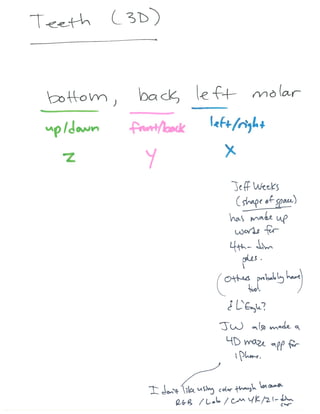 Teeth (3D)
bottom, back, left molar
up/down front/back left/right
Z Y X
Jeff Weeks
(shape of space)
has made up
words for
4th-dim
ples.
(others probably have
too).
¿ L'Engle?
JW also made a
4D maze app for
iPhone.
I don't like using color though because
RGB / Lab / CMYK / 21-dim